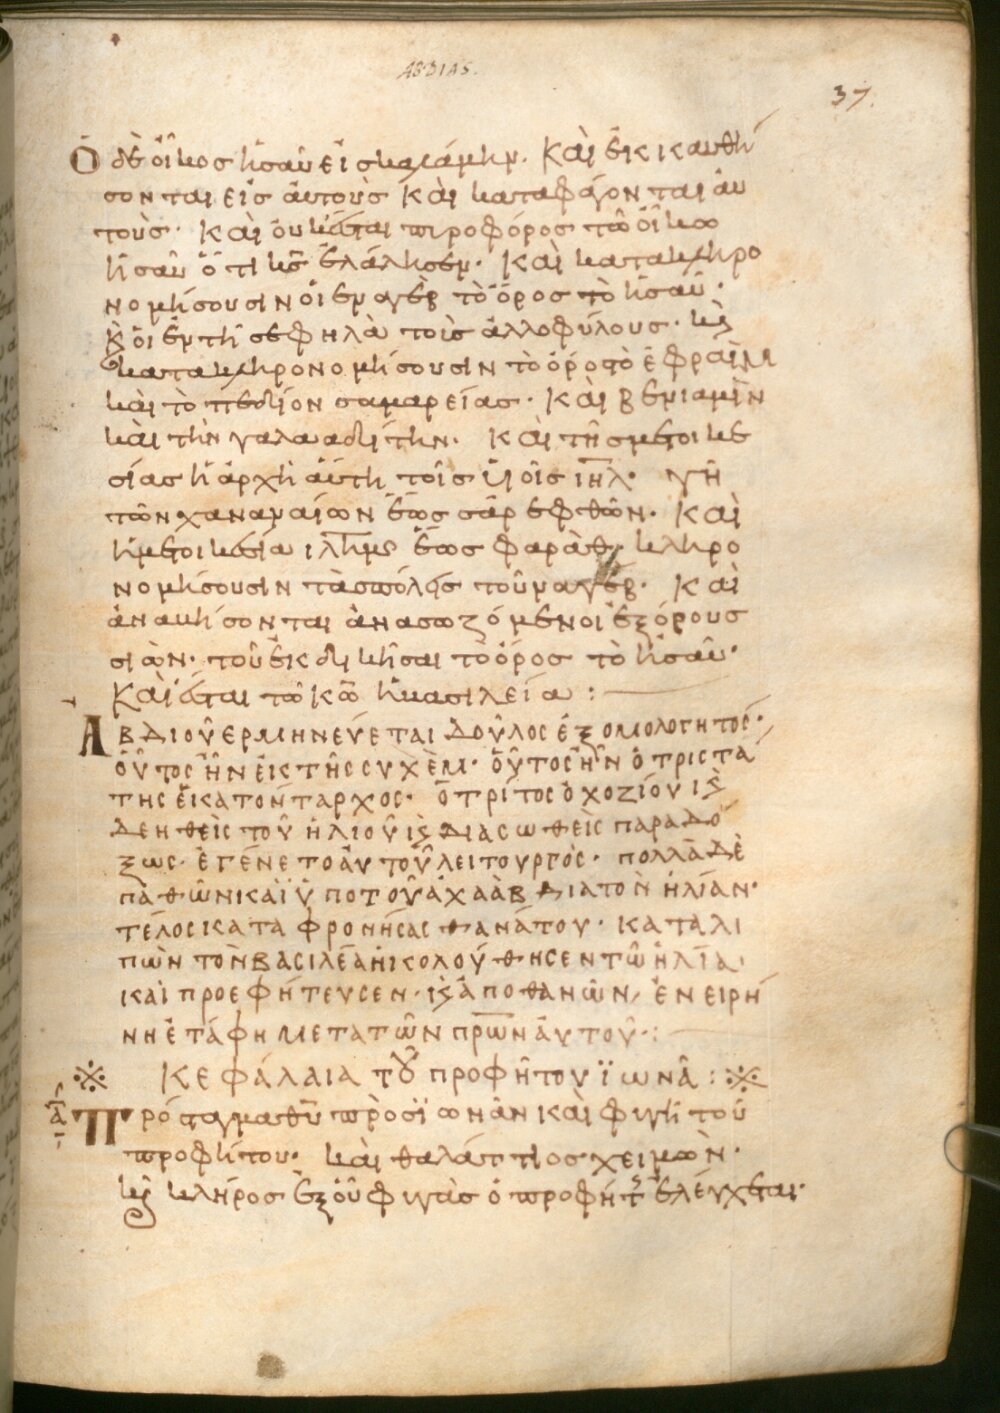 ABDIAS.
37.
Ὁ δὲ οἶκος ἡσαῦ εἰς καλάμην. Καὶ ἐκκαυθή
σονται εἰς ἀυτοὺς καὶ καταφάγονται ἀυ
τοὺς· καὶ ὀυκ ἔσται πυροφόρος τῶ ὄικω
ἡσαῦ ὅτι κς̅ ἐλάλησεν· Καὶ κατακληρο
νομήσουσιν ὁι ἐν αγὲβ τὸ ὄρος τὸ ἡσαῦ·
ϗ ὁι ἐν τῆ σεφηλὰ τοὺς ἀλλοφύλους· ϗ
κατακληρονομήσουσιν τὸ ὄρος τὸ ἐφραῒμ
καὶ τὸ πεδίον σαμαρείας· Καὶ βενιαμὶν
καὶ τὴν γαλααδίτην· Καὶ τῆς μετοικε
σίας ἡ ἀρχὴ ἀύτη τοῖς ὑιοῖς ιη̅λ· γῆ
τῶν χαναναίων ἕως σάρεφθῶν· Καὶ
ἡ μετοικεσία ιλ̅ημ ἕως φαράθ· κληρο
νομήσουσιν τὰς πόλεις τοῦ ναγὲβ· Καὶ
ἀναβήσονται ἀνασωζόμενοι ἐξ ὄρους
σιὼν· τοῦ ἐκδικῆσαι τὸ ὄρος τὸ ἡσαῦ·
Καὶ ἔσται τῶ κω̅ ἡ βασιλεία :
Ἀβδιοῦ ἑρμηνεύεται δοῦλος ἐξομολογητος·
ὁῦτος ἦν ἐκ τῆς συχὲμ· ὁῦτος ἦν ὁ τρις τα
της ἑκατοντάρχος· ὁ τρίτος ὀχοζίου ϗ
δεηθεὶς τοῦ ἡλιοῦ ϗ διασωθεὶς παραδό
ξως· ἐγένετο ἀυτοῦ λειτουργὸς· πολλὰ δὲ
παθὼν καὶ ὑπο τοῦ ἀχαὰβ δια τὸν ἡλίαν·
τέλος καταφρονήσας θανάτου· καταλι
πὼν τὸν βασιλέα ἠκολούθησεν τῶ ἡλία·
καὶ προεφήτευσεν· ϗ ἀποθανὼν, ἐν ειρή
νη ἐτάφη μετα τῶν πρω̅ν ἀυτοῦ·:
※ Κεφάλαια τοῦ προφήτου ϊωνᾶ : ※
α̅ Πρόσταγμα θυ̅ πρὸς ϊωνᾶν καὶ φυγὴ τοῦ
προφήτου· καὶ θαλάττιος χειμὼν·
ϗ κλῆρος ἐξ ὁῦ φυγὰς ὁ προφήτης ἐλέγχεται·